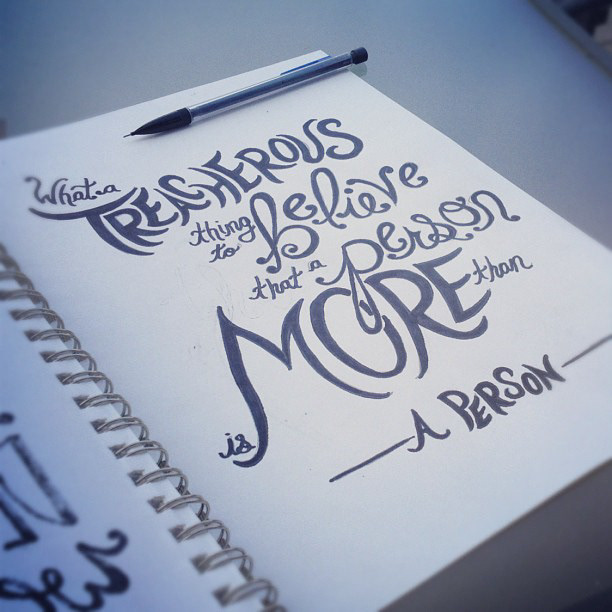 What a
TREACHEROUS
thing
to
believe
that a person
is MORE than
A PERSON